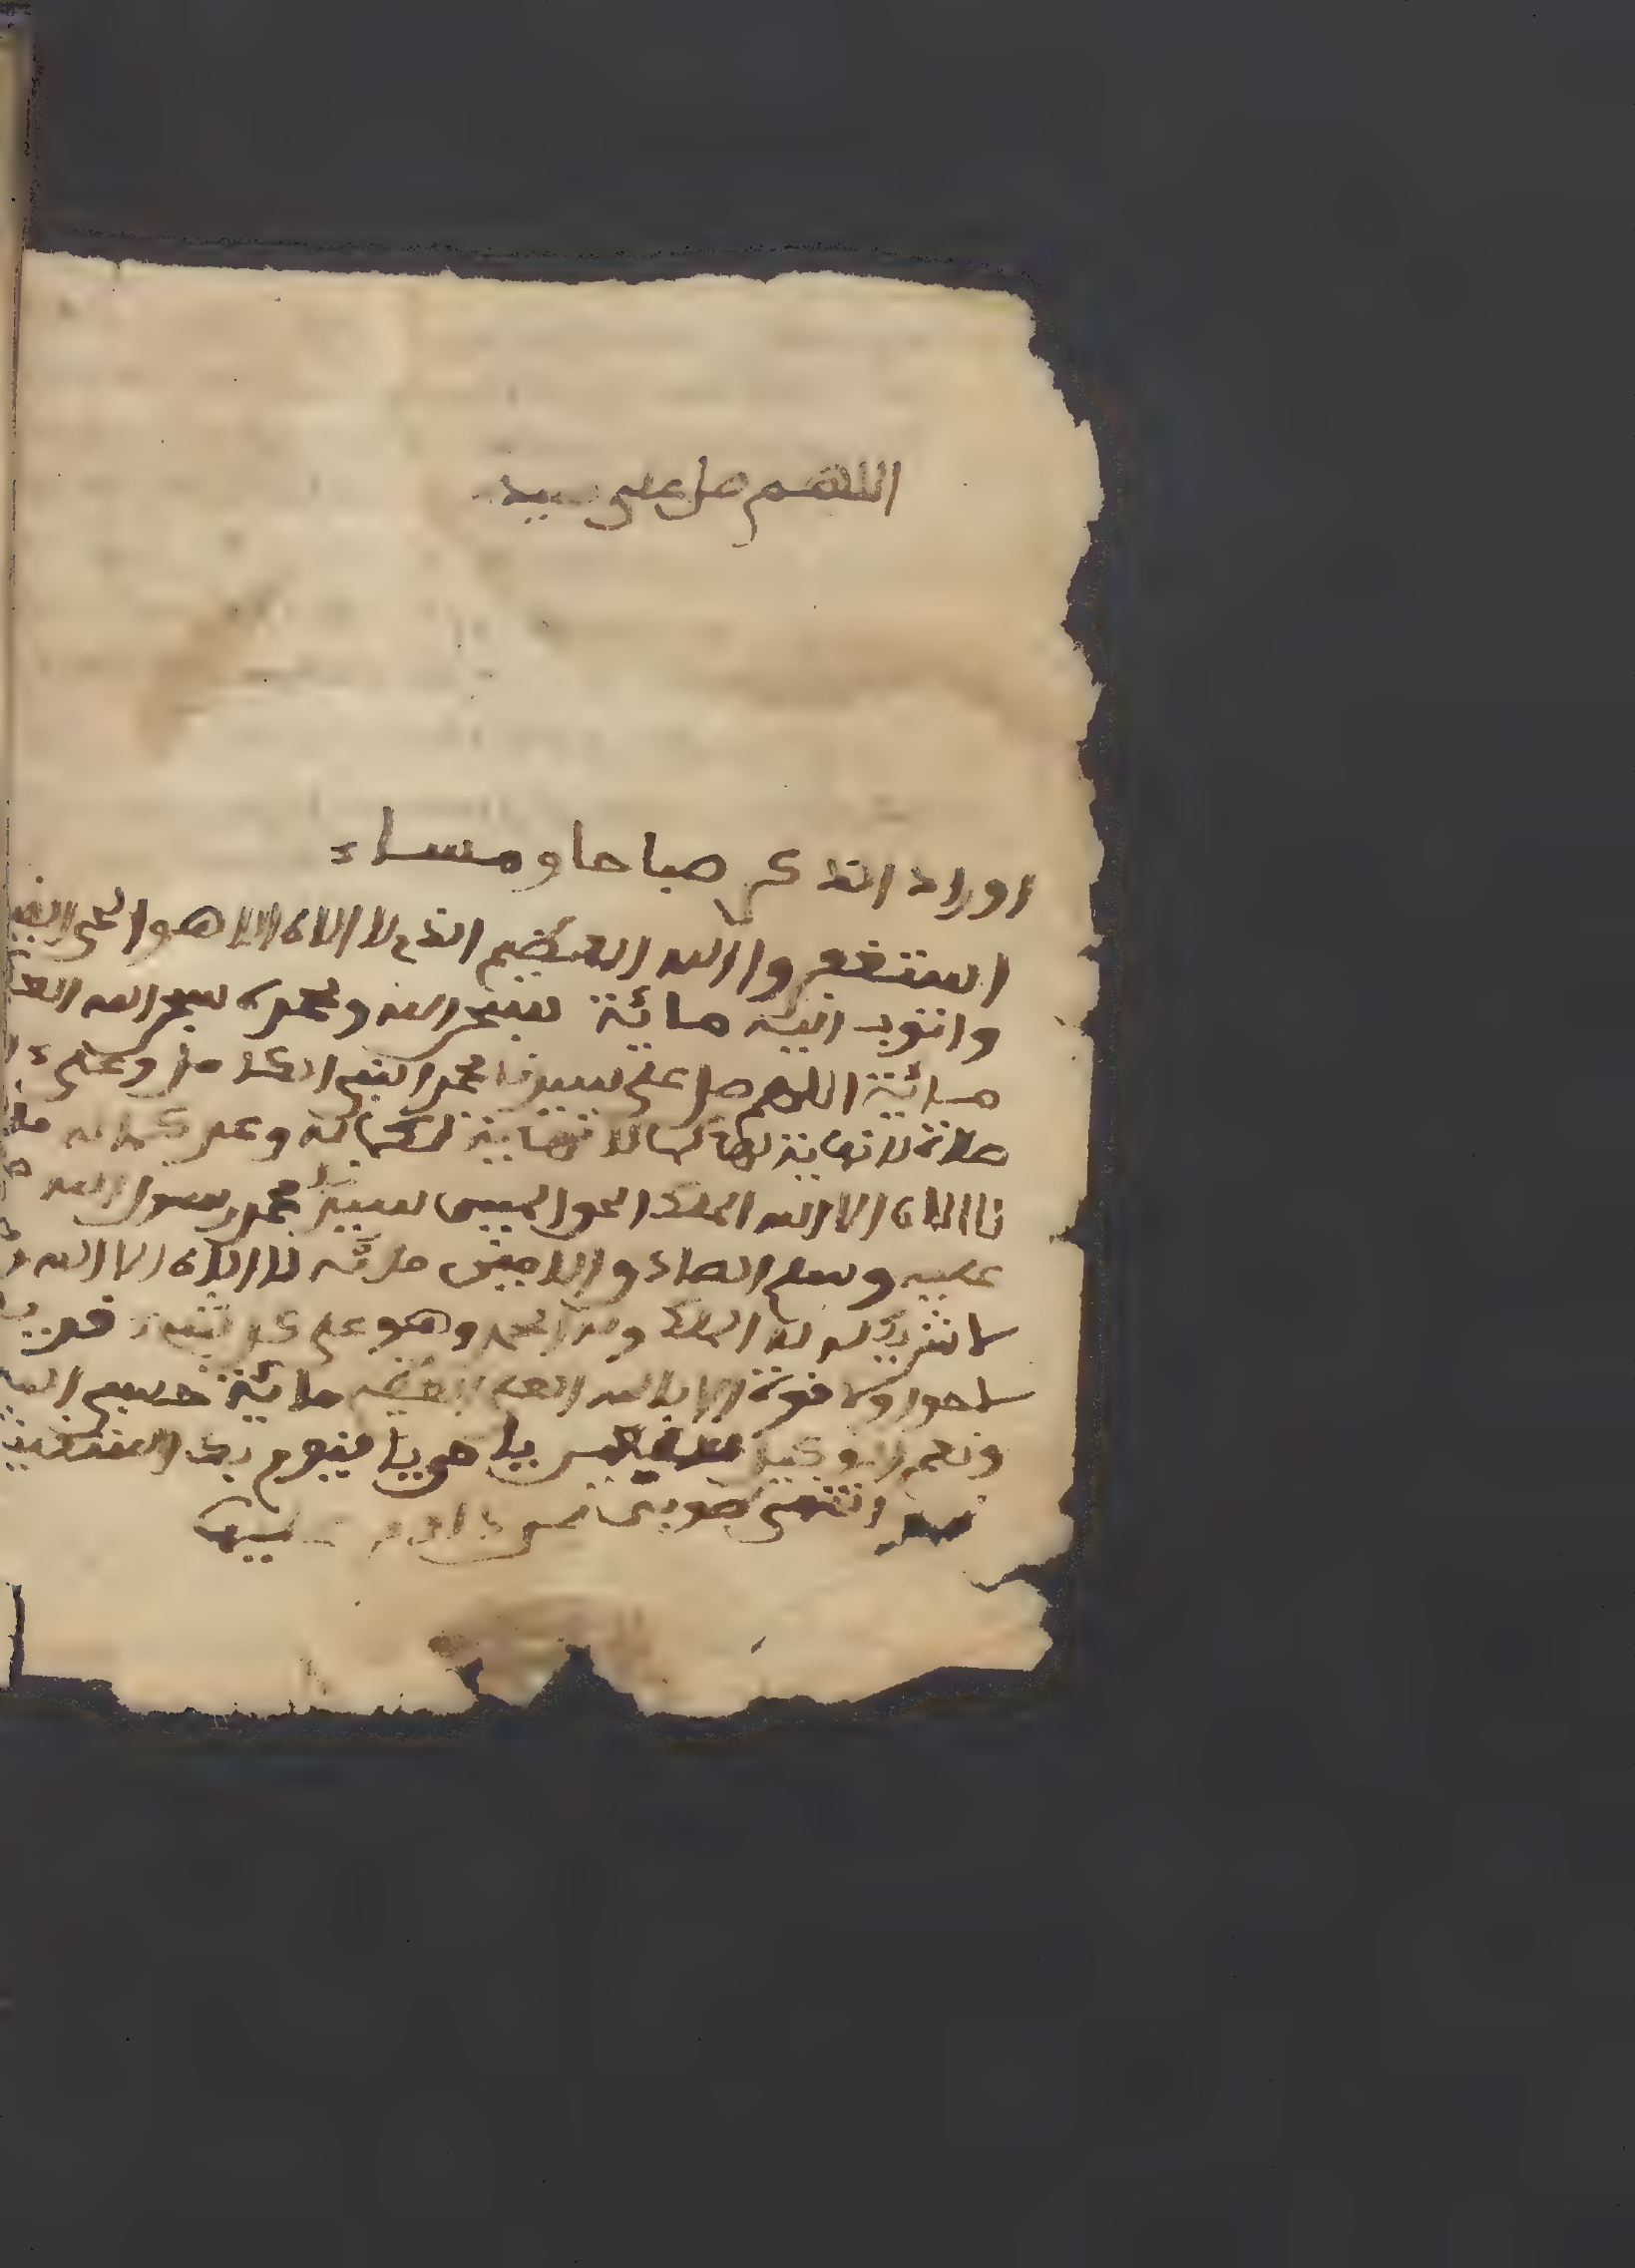 اللهم صل على سيد
اوراد الذكر صباحا ومساء
استغفروا الله العظيم الذي لا الاه الا هو الحي القيو
واتوب اليه مائة سبحن الله وبحمده سبحن الله العظ
مائة اللهم صل على سيدنا محمد النبي الكامل وعلى ء
صلاة لا نهاية لها كما لا نهاية لكماله وعد كماله مائة
لا الاه الا الله الملك الحق المبين سيدنا محمد رسول الله
عليه وسلم الصادق الامين مائة لا الاه الا الله
لا شريك له له الملك وله الحمد وهو على كل شيء قدير
لا حول ولا قوة الا بالله العلي العظيم مائة حسبي الله
ونعم الوكيل يا حي يا قيوم بك استغيث
انتهى